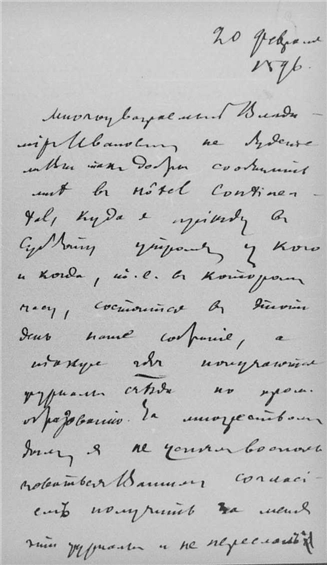 20 февраля
1896.
Многоуважаемый Влади-
міръ Ивановичъ не будете
ли Вы такъ добры сообщить
мнѣ въ Hôtel Continen-
tal, куда я пріѣду въ
Субботу утромъ, у кого
и когда, т. е. въ которомъ
часу, состоится въ этотъ
день наше собраніе, а
также гдѣ получаются
журналы съѣзда по проф.
образованію. За множествомъ
дѣлъ я не успѣлъ восполь-
зоваться Вашимъ согласі-
емъ получить за меня
эти журналы и не переслалъ